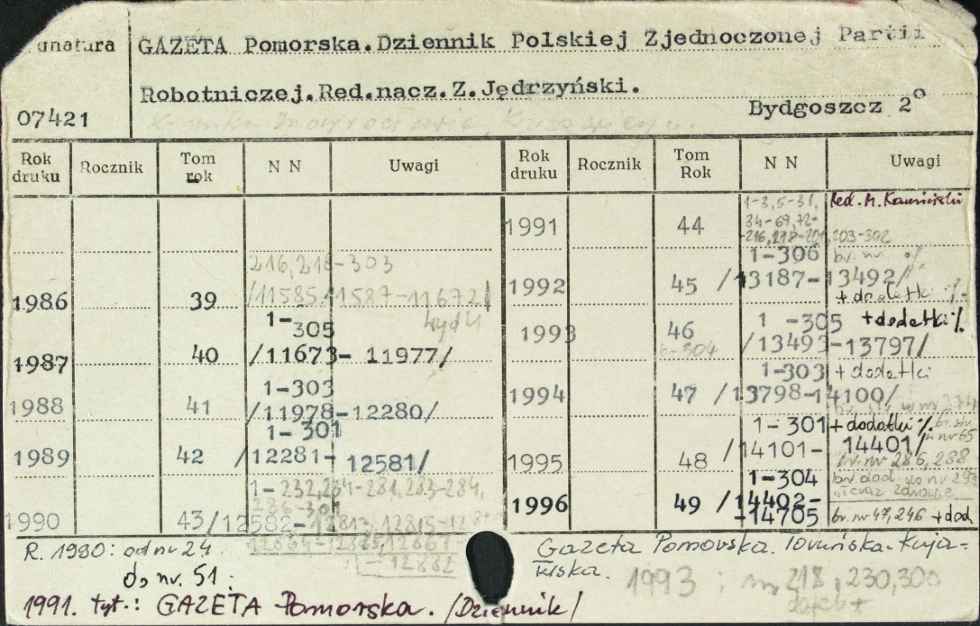 gnatura
GAZETA Pomorska.Dziennik Polskiej Zjednoczonej Partii
Robotniczej.Red.nacz.Z.Jędrzyński.
07421
Bydgoszcz 2°
Rok druku Rocznik Tom rok N N Uwagi Rok druku Rocznik Tom Rok N N Uwagi
216,218-303
1986 39 /11585 11587-11672/
1-305
1987 40 /11673- 11977/
1-303
1988 41 /11978-12280/
1-301
1989 42 /12281- 12581/
1-232,234-281,283-284,
1990 43/12582-
1991 44 1-3,5-31,
34-69,72-
203-302
Red. M.
1-306
1992 45 /13187-13492/
+ dodatki
1993 46 1 -305 + dodatki
/13493-13797/
1-303 + dodatki
1994 47 /13798-14100/
1-301 + dodatki
1995 48 /14101- 14401/
br. nr 286, 288
1-304
1996 49 /14402-
-14705 br. nr 47, 246 + dod
R. 1980: od nr 24
do nr. 51.
1991. tyt.: GAZETA Pomorska. /Dziennik/
Gazeta Pomorska. Toruńska. Kuja-
wska.
1993 : nr 218, 230, 300